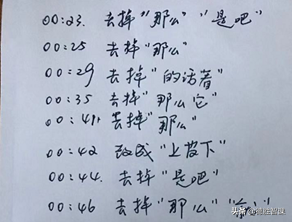 00:23. 去掉"那么""是吧"
00:25 去掉"那么"
00:29 去掉"的话着"
00:35 去掉"那么它"
00:41. 去掉"那么"
00:42 改成"上皮下"
00:44. 去掉"是吧"
00:46 去掉"那么"